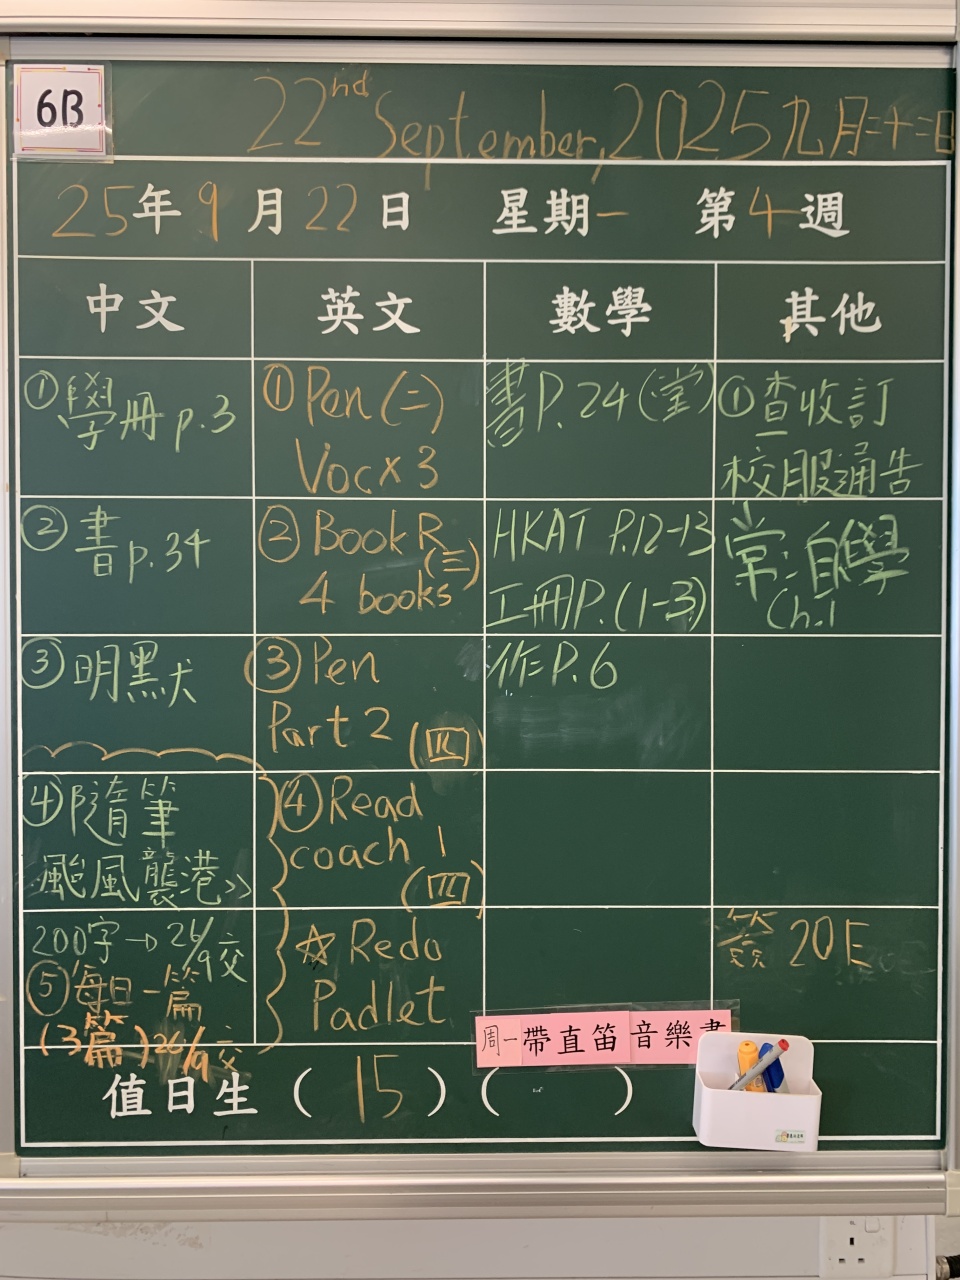 6B
22nd September, 2025 九月二十二日
25年9月22日 星期一 第4週
中文 英文 數學 其他
①學冊 p.3
②書 p.34
③明默
④隨筆
颱風襲港>>
200字→26/9交
⑤每日一篇
(3篇) 26/9交
①Pen (二)
Voc x 3
②Book R (三)
4 books
③Pen
Part 2 (四)
④Read
coach 1
(四)
☆Redo
Padlet
書 P.24 (堂)
HKAT P.12-13
工冊P.(1-3)
作 P.6
①查收訂
校服通告
常:自學
Ch.1
簽 20E
周一帶直笛音樂書
值日生 ( 15 ) ( )